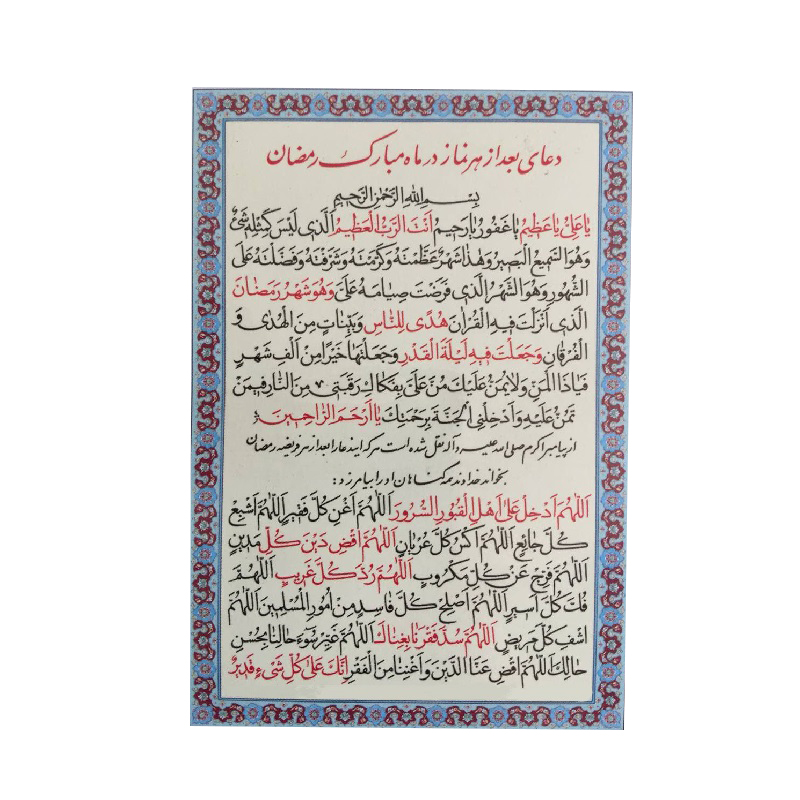 دعای بعد از هر نماز در ماه مبارک رمضان
بِسْمِ اللهِ الرَّحْمٰنِ الرَّحِیمِ
یٰا عَلِیُّ یٰا عَظِیمُ یٰا غَفُورُ یٰا رَحِیمُ اَنْتَ الرَّبُّ الْعَظِیمُ اَلَّذی لَیْسَ کَمِثْلِهِ شَیْءٌ
وَهُوَ السَّمِیعُ الْبَصِیرُ وَهٰذا شَهْرٌ عَظَّمْتَهُ وَکَرَّمْتَهُ وَشَرَّفْتَهُ وَفَضَّلْتَهُ عَلَی
الشُّهُورِ وَهُوَ الشَّهْرُ الَّذی فَرَضْتَ صِیامَهُ عَلَیَّ وَهُوَ شَهْرُ رَمَضٰانَ
الَّذی اَنْزَلْتَ فیهِ الْقُرْاٰنَ هُدًی لِلنّٰاسِ وَبَیِّنٰاتٍ مِنَ الْهُدٰی وَ
الْفُرْقٰانِ وَجَعَلْتَ فیهِ لَیْلَةَ الْقَدْرِ وَجَعَلْتَهٰا خَیْرًا مِنْ اَلْفِ شَهْرٍ
فَیٰا ذَا الْمَنِّ وَلٰا یُمَنُّ عَلَیْکَ مُنَّ عَلَیَّ بِفَکٰاکِ رَقَبَتی مِنَ النّٰارِ فیمَنْ
تَمُنُّ عَلَیْهِ وَاَدْخِلْنِی الْجَنَّةَ بِرَحْمَتِکَ یٰا اَرْحَمَ الرّٰاحِمینَ
از پیامبر اکرم صلی الله علیه و آله نقل شده است هر که این دعا را بعد از هر فریضه رمضان
بخواند خداوند همه گناهان او را بیامرزد :
اَللّٰهُمَّ اَدْخِلْ عَلیٰ اَهْلِ الْقُبُورِ السُّرُورَ اَللّٰهُمَّ اَغْنِ کُلَّ فَقیرٍ اَللّٰهُمَّ اَشْبِعْ
کُلَّ جٰائِعٍ اَللّٰهُمَّ اکْسُ کُلَّ عُرْیٰانٍ اَللّٰهُمَّ اقْضِ دَیْنَ کُلِّ مَدینٍ
اَللّٰهُمَّ فَرِّجْ عَنْ کُلِّ مَکْرُوبٍ اَللّٰهُمَّ رُدَّ کُلَّ غَریبٍ اَللّٰهُمَّ
فُکَّ کُلَّ اَسیرٍ اَللّٰهُمَّ اَصْلِحْ کُلَّ فٰاسِدٍ مِنْ اُمُورِ الْمُسْلِمینَ اَللّٰهُمَّ
اشْفِ کُلَّ مَریضٍ اَللّٰهُمَّ سُدَّ فَقْرَنٰا بِغِنٰاکَ اَللّٰهُمَّ غَیِّرْ سُوءَ حٰالِنٰا بِحُسْنِ
حٰالِکَ اَللّٰهُمَّ اقْضِ عَنَّا الدَّیْنَ وَاَغْنِنٰا مِنَ الْفَقْرِ اِنَّکَ عَلیٰ کُلِّ شَیْءٍ قَدیرٌ